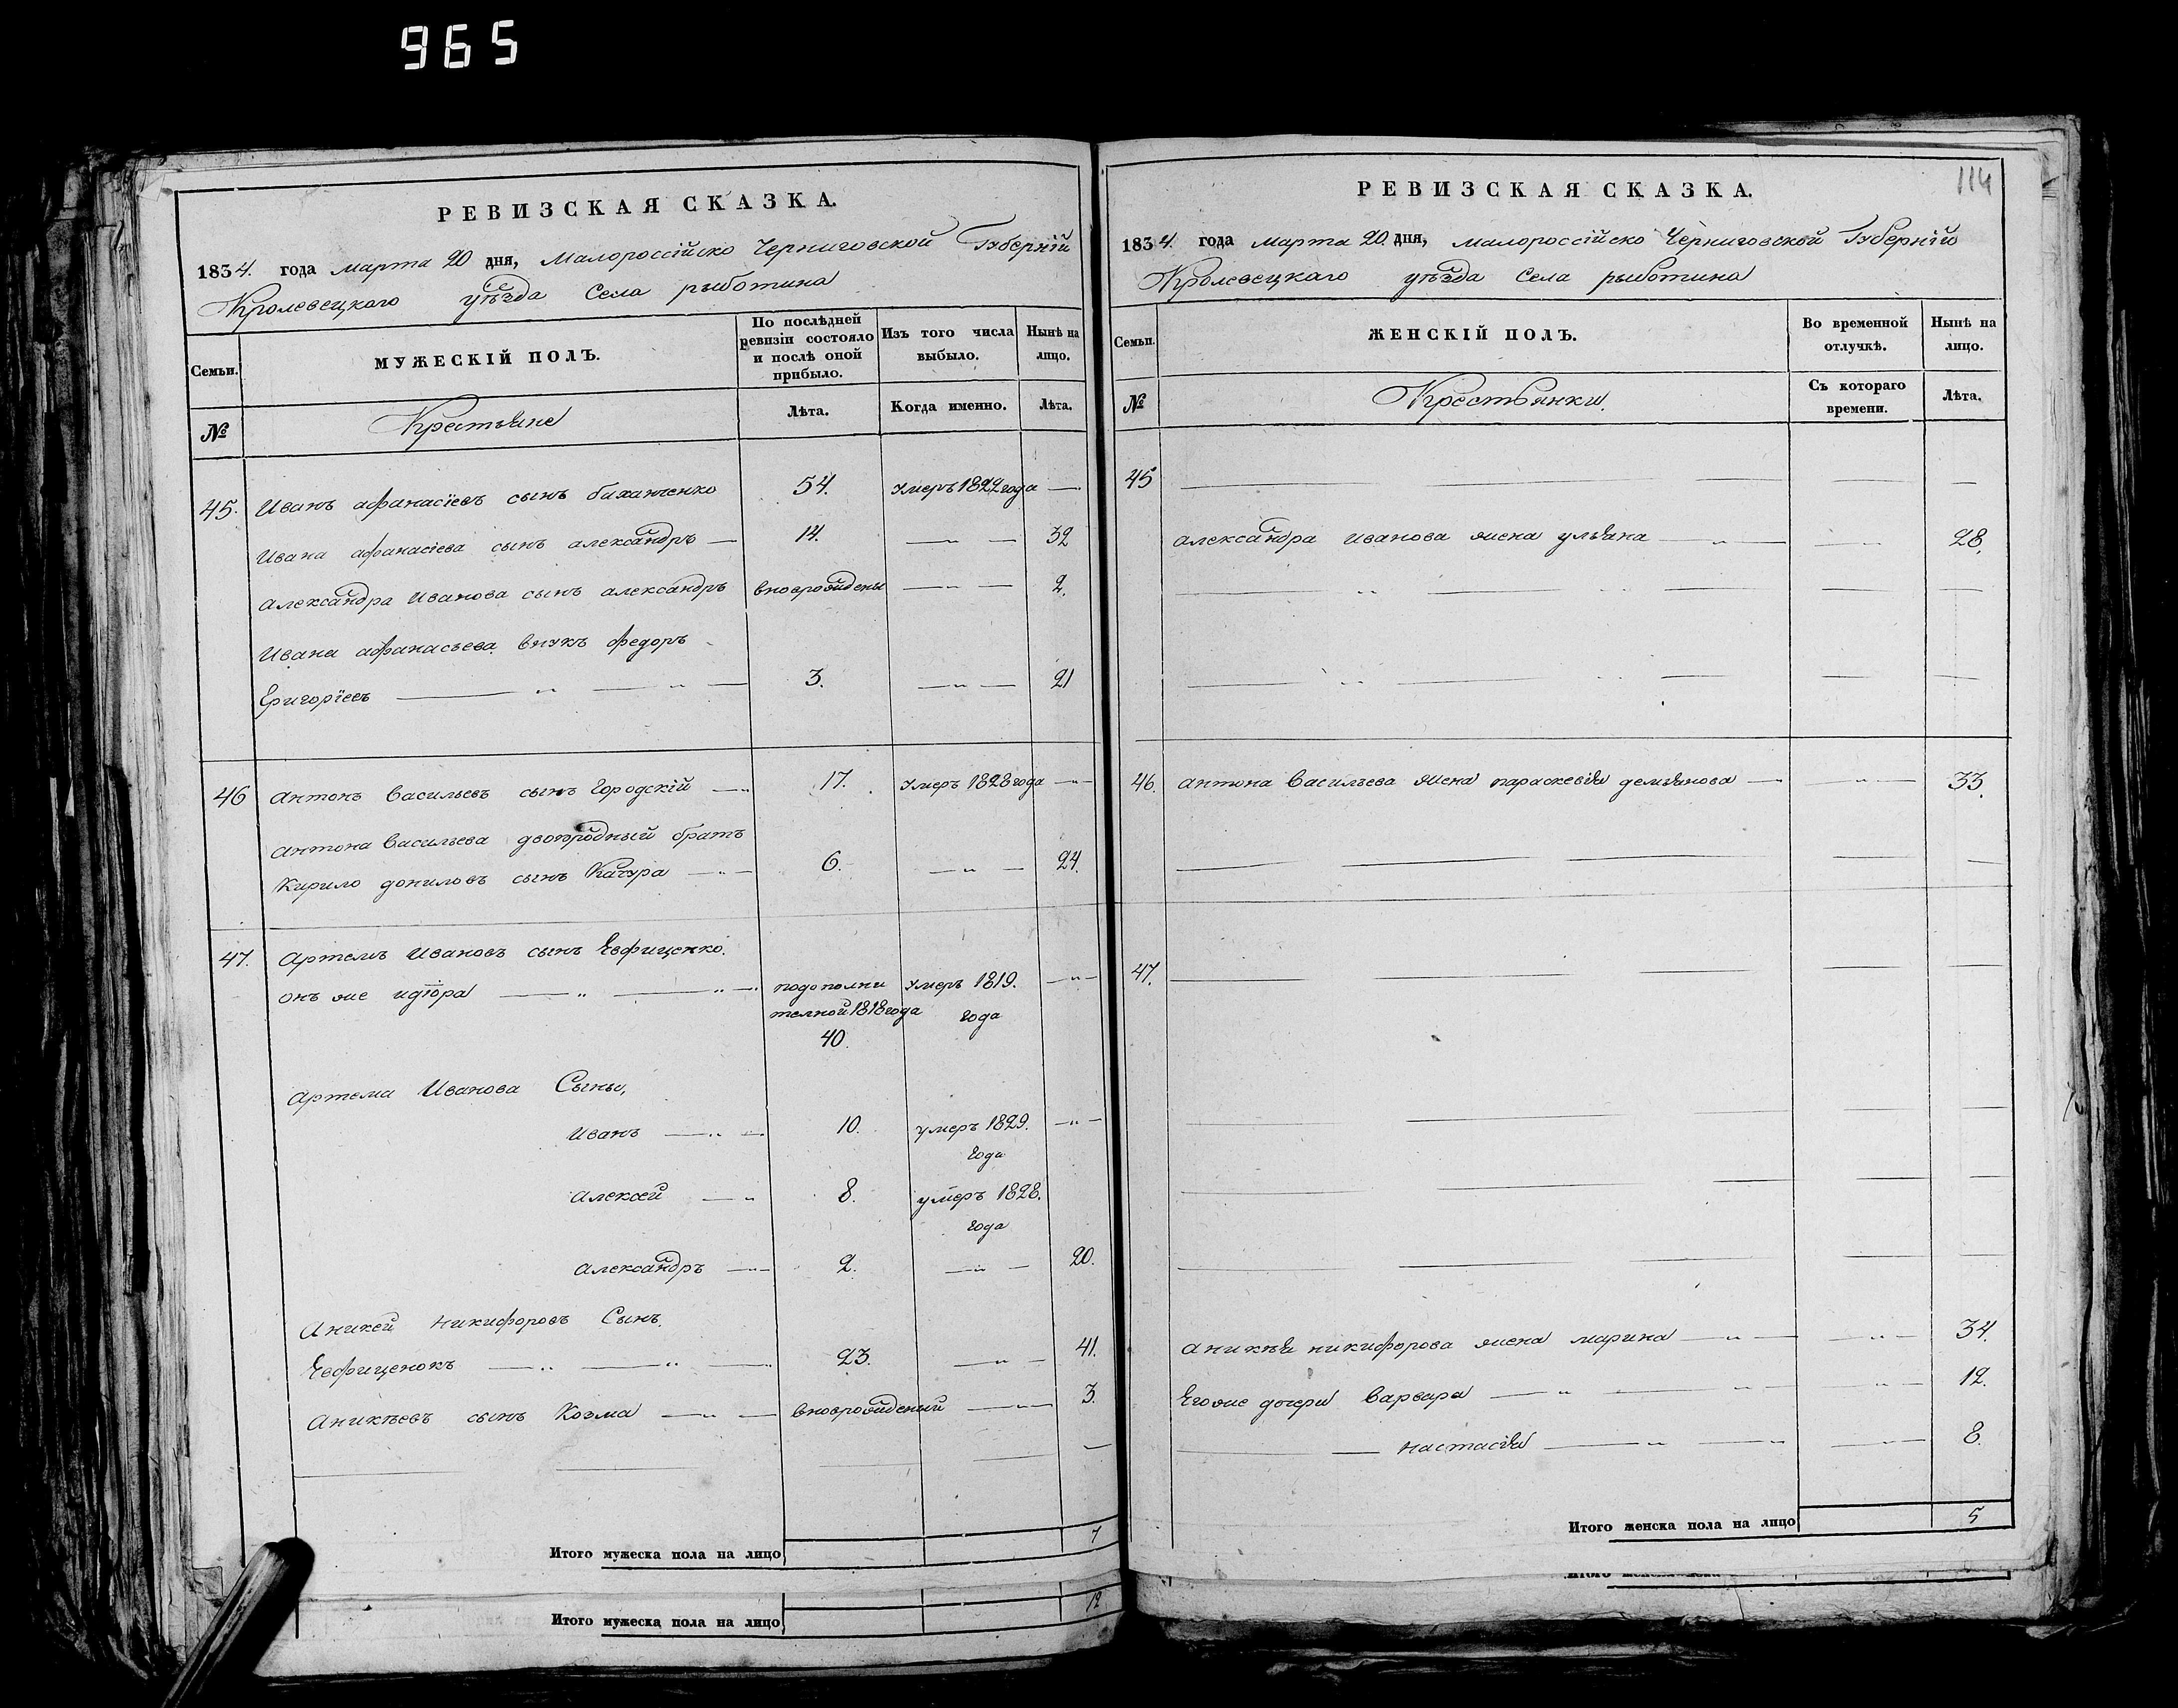 965
РЕВИЗСКАЯ СКАЗКА.
1834. года марта 20 дня, Малороссійско Черниговской Губерній
Кролевецкаго уѣзда Села рыботина
Семьи.
МУЖЕСКІЙ ПОЛЪ.
По послѣдней ревизіи состояло и послѣ оной прибыло.
Изъ того числа выбыло.
Нынѣ на лицо.
№
Крестьяне
Лѣта.
Когда именно.
Лѣта.
45. Иванъ афанасіевъ сынъ 54. Умеръ 1822 года —
Ивана афанасіева сынъ александръ — 14. —„— 32
александра Иванова сынъ александръ вноврожденъ —„— 2.
Ивана афанасьева внукъ федоръ
Григоріевъ —„—„— 3. —„— 21
46 антонъ Васильевъ сынъ Городскій —„ 17. Умеръ 1828 года —„—
антона Васильева двоюродный братъ
Кирило даниловъ сынъ Качура —„— 6. —„— 24.
47. Артемъ Ивановъ сынъ Евфищенко.
онъ же —„—„— подополни Умеръ 1819. —„—
телной 1818 года года
40.
Артема Иванова Сыны,
Иванъ —„— 10. умеръ 1829. —„—
года
алексей —„ 8. умеръ 1828.
года
александръ —„— 2. —„— 20.
Аникей никифоровъ Сынъ
Евфищенокъ —„—„— 23. —„— 41.
Аникѣевъ сынъ Козма —„— вноврожденій —„— 3.
Итого мужеска пола на лицо 7
Итого мужеска пола на лицо 12
114
РЕВИЗСКАЯ СКАЗКА.
1834. года марта 20. дня, малороссійско Черниговской Губерній
Кролевецкаго уѣзда Села рыботина
Семьи.
ЖЕНСКІЙ ПОЛЪ.
Во временной отлучкѣ.
Нынѣ на лицо.
№
Крестьянки.
Съ котораго времени.
Лѣта.
45 — — —
александра иванова жена ульяна —„— —„— 28.
46. антона Васильева жена параскевія демьянова — —„— 33.
47. — — —
аникѣя никифорова жена марина —„— —„— 34.
Егоже дочери Варвара —„—„— „— 12.
— настасія —„—„ —„— 8.
Итого женска пола на лицо 5